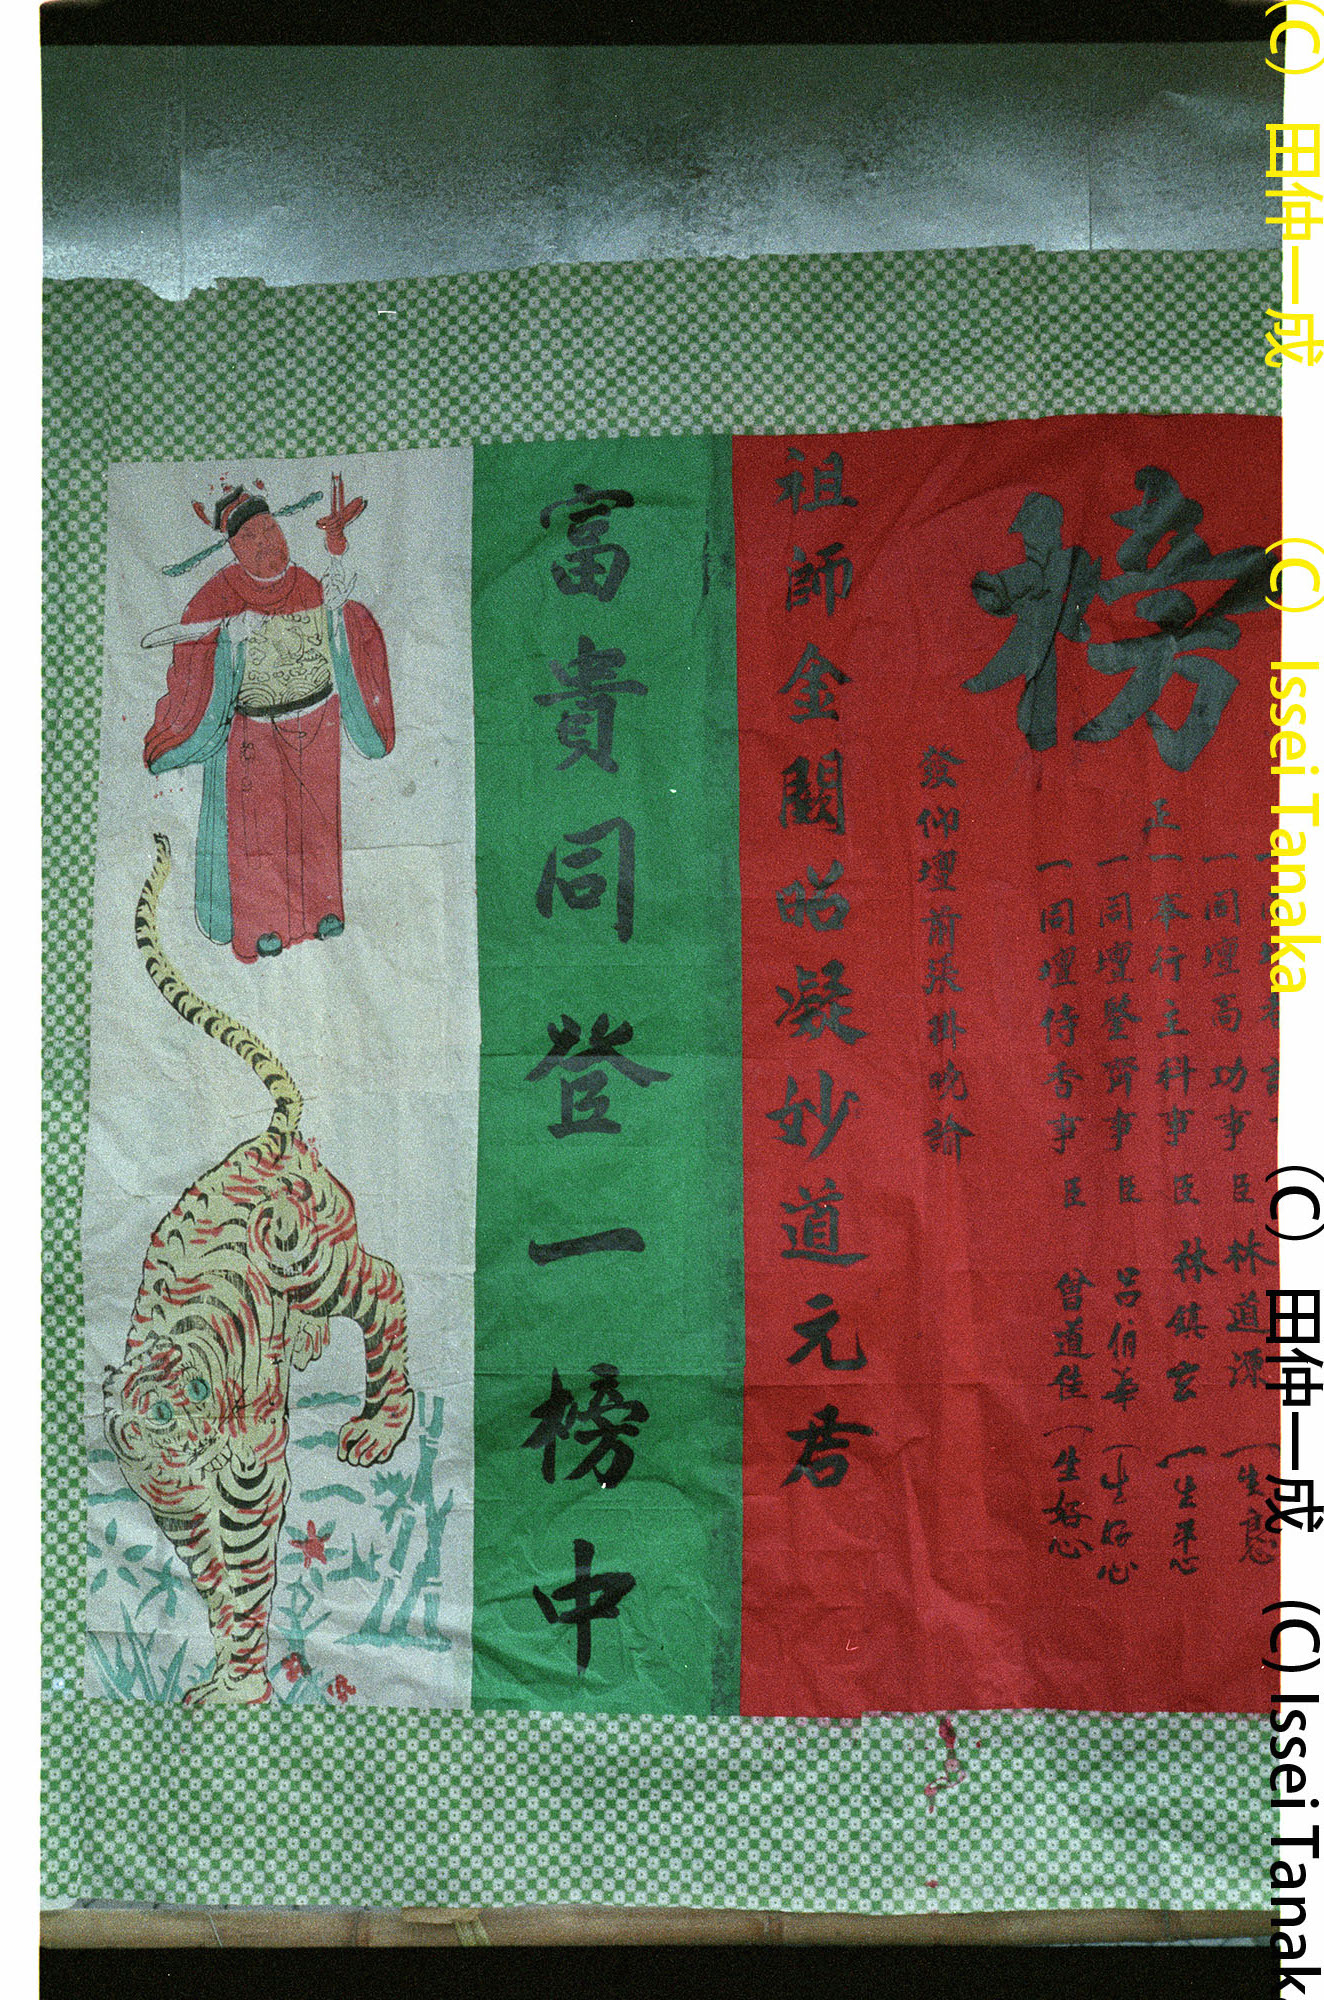 榜
正
一同壇高功事臣林道源
一奉行主科事臣林鎮玄 一生平心
一同壇鑒齋事臣呂伯華 一生好心
一同壇侍香事臣曾道佳 一生好心
發仰壇前張掛晓諭
祖師金闕昭凝妙道元君
富貴同登一榜中
(C) 田仲一成 (C) Issei Tanaka
(C) 田仲一成 (C) Issei Tanak